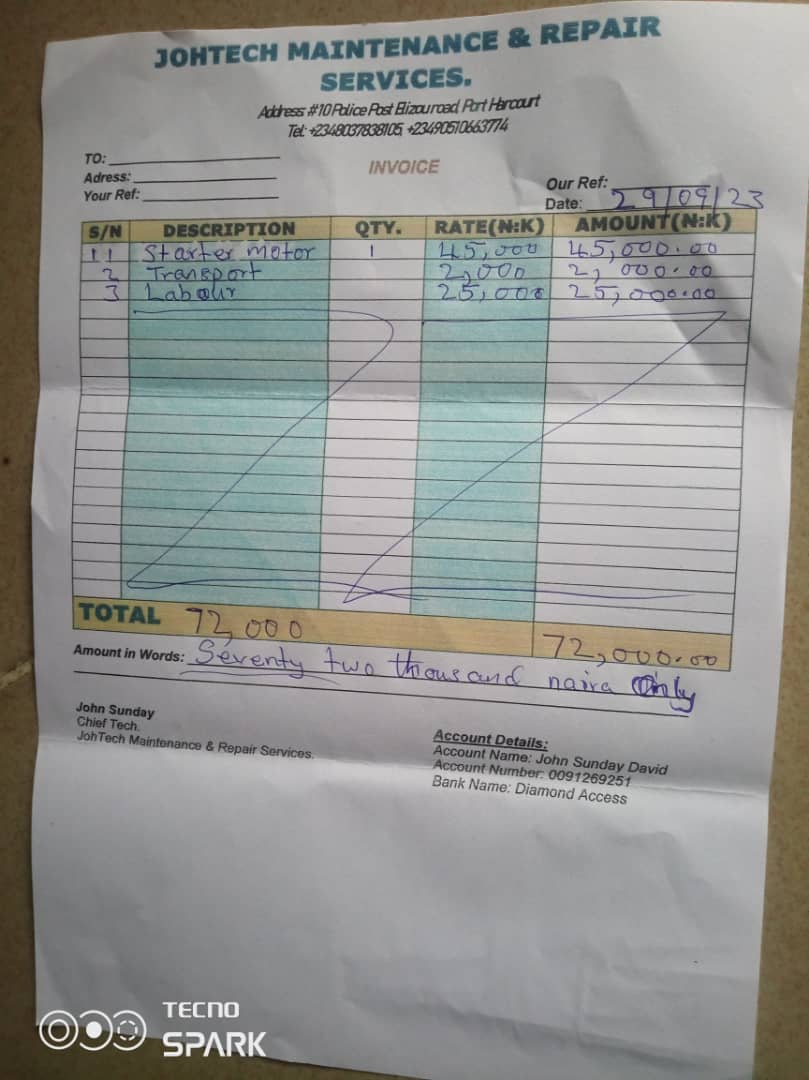 JOHTECH MAINTENANCE & REPAIR
SERVICES.
Address: #10 Police Post Elizou road, Port Harcourt
Tel: +2348037838105, +23490510663774
TO:
Adress:
Your Ref:
INVOICE
Our Ref:
Date: 29/09/23
S/N DESCRIPTION QTY. RATE(N:K) AMOUNT(N:K)
1 Starter motor 1 45,000 45,000.00
2 Transport 2,000 2,000.00
3 Labour 25,000 25,000.00
TOTAL 72,000 72,000.00
Amount in Words: Seventy two thousand naira Only
John Sunday
Chief Tech.
JohTech Maintenance & Repair Services.
Account Details:
Account Name: John Sunday David
Account Number: 0091269251
Bank Name: Diamond Access
TECNO
SPARK